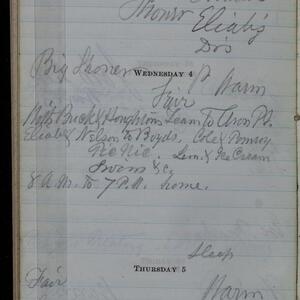 Eliab's
Do's
Big Shower
WEDNESDAY 4
P Warm
Fair
Buck & Houghton Team to
Eliab & Nelson to Boyds. Cole & Pomroy
Pic Nic. Lem & Ice Cream
&c.
8 A.M. to 7 P.M. home.
Sleep
THURSDAY 5
Fair
Warm